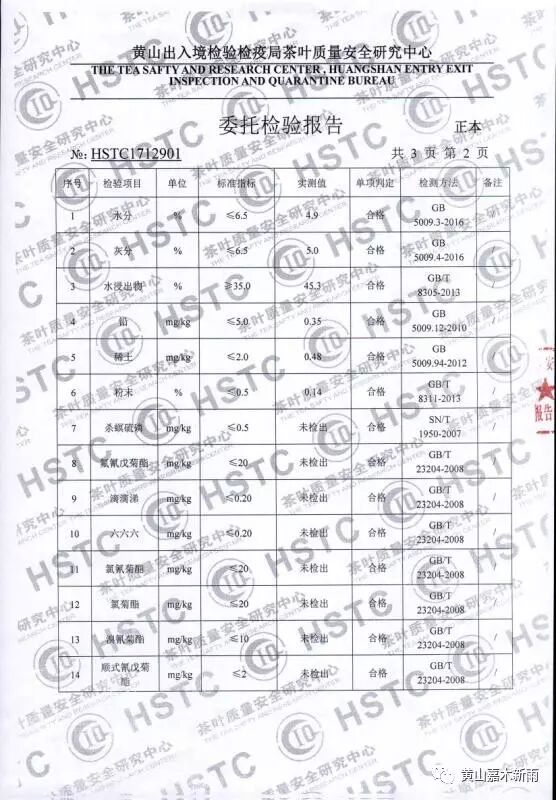 黄山出入境检验检疫局茶叶质量安全研究中心
THE TEA SAFTY AND RESEARCH CENTER , HUANGSHAN ENTRY EXIT
INSPECTION AND QUARANTINE BUREAU
委托检验报告 正本
№: HSTC1712901 共 3 页 第 2 页
序号 检验项目 单位 标准指标 实测值 单项判定 检测方法 备注
1 水分 % ≤6.5 4.9 合格 GB 5009.3-2016 /
2 灰分 % ≤6.5 5.0 合格 GB 5009.4-2016 /
3 水浸出物 % ≥35.0 45.3 合格 GB/T 8305-2013 /
4 铅 mg/kg ≤5.0 0.35 合格 GB 5009.12-2010 /
5 稀土 mg/kg ≤2.0 0.48 合格 GB 5009.94-2012 /
6 粉末 % ≤0.5 0.14 合格 GB/T 8311-2013 /
7 杀螟硫磷 mg/kg ≤0.5 未检出 合格 SN/T 1950-2007 /
8 氟氰戊菊酯 mg/kg ≤20 未检出 合格 GB/T 23204-2008 /
9 滴滴涕 mg/kg ≤0.20 未检出 合格 GB/T 23204-2008 /
10 六六六 mg/kg ≤0.20 未检出 合格 GB/T 23204-2008 /
11 氯氰菊酯 mg/kg ≤20 未检出 合格 GB/T 23204-2008 /
12 氯菊酯 mg/kg ≤20 未检出 合格 GB/T 23204-2008 /
13 溴氰菊酯 mg/kg ≤10 未检出 合格 GB/T 23204-2008 /
14 顺式氰戊菊酯 mg/kg ≤2 未检出 合格 GB/T 23204-2008 /
报告
HSTC
茶叶质量安全研究中心
黄山嘉木新雨